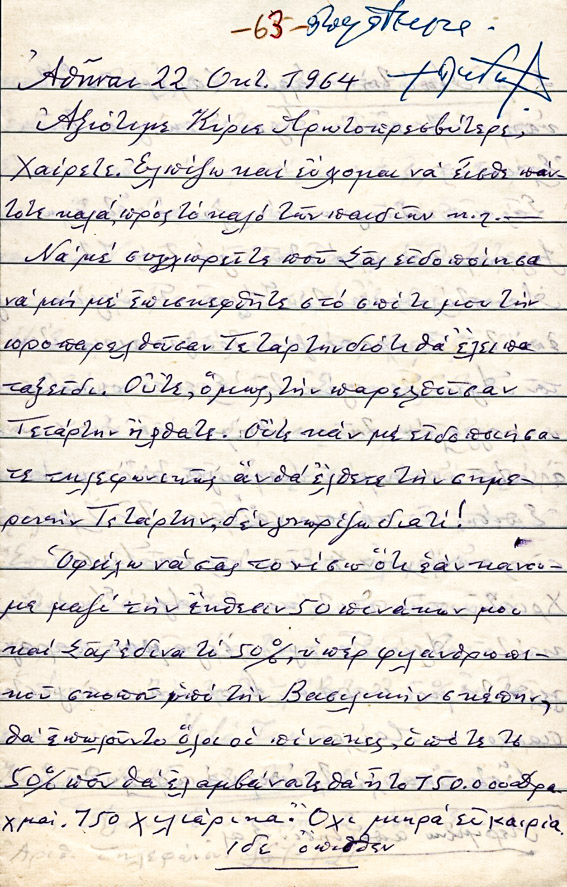 -63-
Ἀθῆναι 22 Οκτ. 1964
Ἀξιότιμε Κύριε Πρωτοπρεσβύτερε,
Χαίρετε. Ἐλπίζω καί εὔχομαι νά εἶσθε πάν-
τοτε καλά, πρός τό καλό τῶν παιδιῶν κ.λ.—
Νά μέ συγχωρεῖτε πού Σᾶς εἰδοποίησα
νά μή μέ ἐπισκεφθῆτε στό σπίτι μου τήν
προπαρελθοῦσαν Τετάρτην διότι θά ἔλειπα
ταξείδι. Οὔτε, ὅμως, τήν παρελθοῦσαν
Τετάρτην ἤλθατε. Οὔτε κάν μέ εἰδοποιήσα-
τε τηλεφωνικῶς ἄν θά ἔλθετε τήν σημε-
ρινήν Τετάρτην, δέν γνωρίζω διατί!
Ὀφείλω νά σᾶς τονίσω ὅτι ἐάν κάνου-
με μαζί τήν ἔκθεσιν 50 πινάκων μου
καί Σᾶς ἔδινα τό 50%, ὑπέρ φιλανθρωπι-
κοῦ σκοποῦ ὑπό τήν Βασιλικήν σκέπην,
θά ἐπωλοῦντο ὅλοι οἱ πίνακες, ὁπότε τό
50% πού θά ἐλαμβάνατε θά ἦτο 750.000 δρα-
χμαί. 750 χιλιάρικα! Ὄχι μικρά εὐκαιρία.
ἰδέ ὄπισθεν